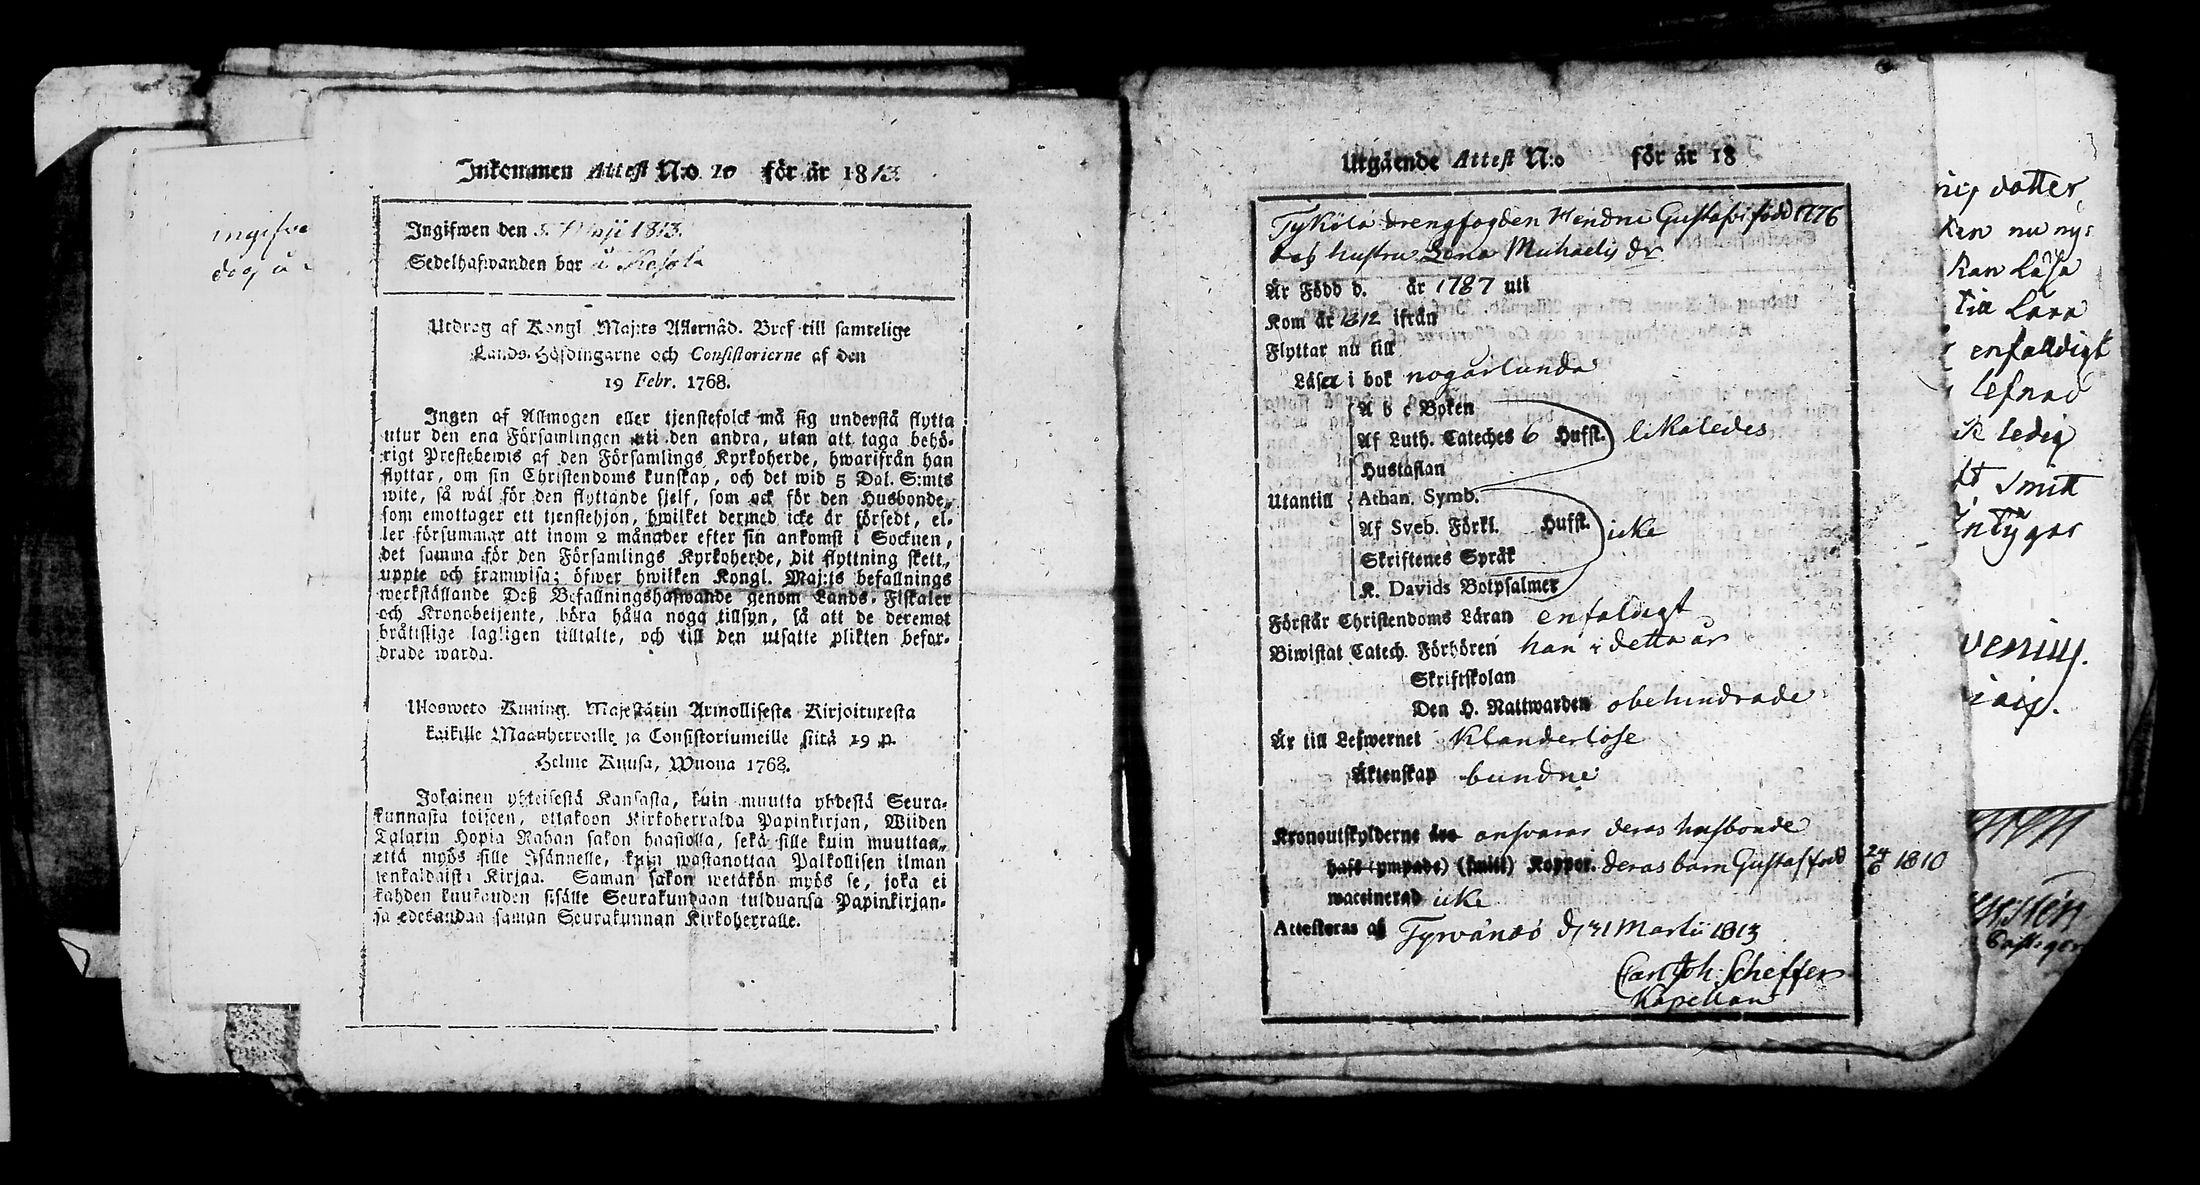 Inkommen Attest N:o 20 för år 1813.
Ingifwen den 5. Maji 1813.
Sedelhafwanden bor å
ingifve
dog å
Utdrag af Kongl. Maj:ts Allernåd. Bref till samtelige
Lands-Höfdingarne och Consistorierne af den
19 Febr. 1768.
Ingen af Allmogen eller tjenstefolck må sig understå flytta
utur den ena Församlingen uti den andra, utan att taga behö-
rigt Prestebewis af den Församlings Kyrkoherde, hwarifrån han
flyttar, om sin Christendoms kunskap, och det wid 5 Dal. S:mts
wite, så wäl för den flyttande sjelf, som ock för den Husbonde,
som emottager ett tjenstehjon, hwilket dermed icke är försedt, el-
ler försummar att inom 2 månader efter sin ankomst i Socknen,
det samma för den Församlings Kyrkoherde, dit flyttning skett,
uppte och framwisa; öfwer hwilken Kongl. Maj:ts befallnings
werkställande Deß Befallningshafwande genom Lands-Fiskaler
och Kronobetjente, böra hålla noga tillsyn, så att de deremot
bråttslige lagligen tilltalte, och till den utsatte plikten befor-
drade warda.
Ulosweto Kuning. Majestätin Armollisesta Kirjoituxesta
kaikille Maanherroille ja Consistoriumeille siitä 19 p.
Helme Kuusa, Wuona 1768.
Jokainen yhteisestä Kansasta, kuin muutta yhdestä Seura-
kunnasta toiseen, ottakoon Kirkoherralda Papinkirjan, Wiiden
Talarin Hopia Rahan sakon haastolla, sekä sille kuin muuttaa,
että myös sille Isännelle, kuin wastanottaa Palkollisen ilman
senkaldaista Kirjaa. Saman sakon wetäkön myös se, joka ei
kahden kuukauden sisälle Seurakundaan tulduansa Papinkirjan-
sa edekandaa saman Seurakunnan Kirkoherralle.
Utgående Attest N:o för år 18
Tyköla drengfogden Hendric Gustafs: född 1776
Deß hustru Lena Michaelis dr
Är Född d. år 1787 uti
Kom år 1812 ifrån
Flyttar nu till
Läser i bok nogorlunda
A b c Boken
Af Luth. Cateches 6 Hufst. likaledes
Hustaflan
Utantill Athan. Symb.
Af Sveb. Förkl. Hufst. icke
Skriftenes Språk
K. Davids Botpsalmer
Förstår Christendoms Läran enfaldigt
Biwistat Catech. Förhören har i detta år
Skriftskolan
Den H. Nattwarden obehindrade
Är till Lefwernet Klanderlöse
Äktenskap bundne
Kronoutskylderne ansvarar deras husbonde
haft (ympade) (smitt) Koppor. deras barn Gustaf född 24/6 1810
waccinerad icke
Attesteras af Tyrväntö d. 31 Martii 1813
Carl Joh: Scheffer
Kapellan
dotter
nu ny:
kan Läsa
till Lära
enfaldigt
lefnad
ledig
smitt
intygar